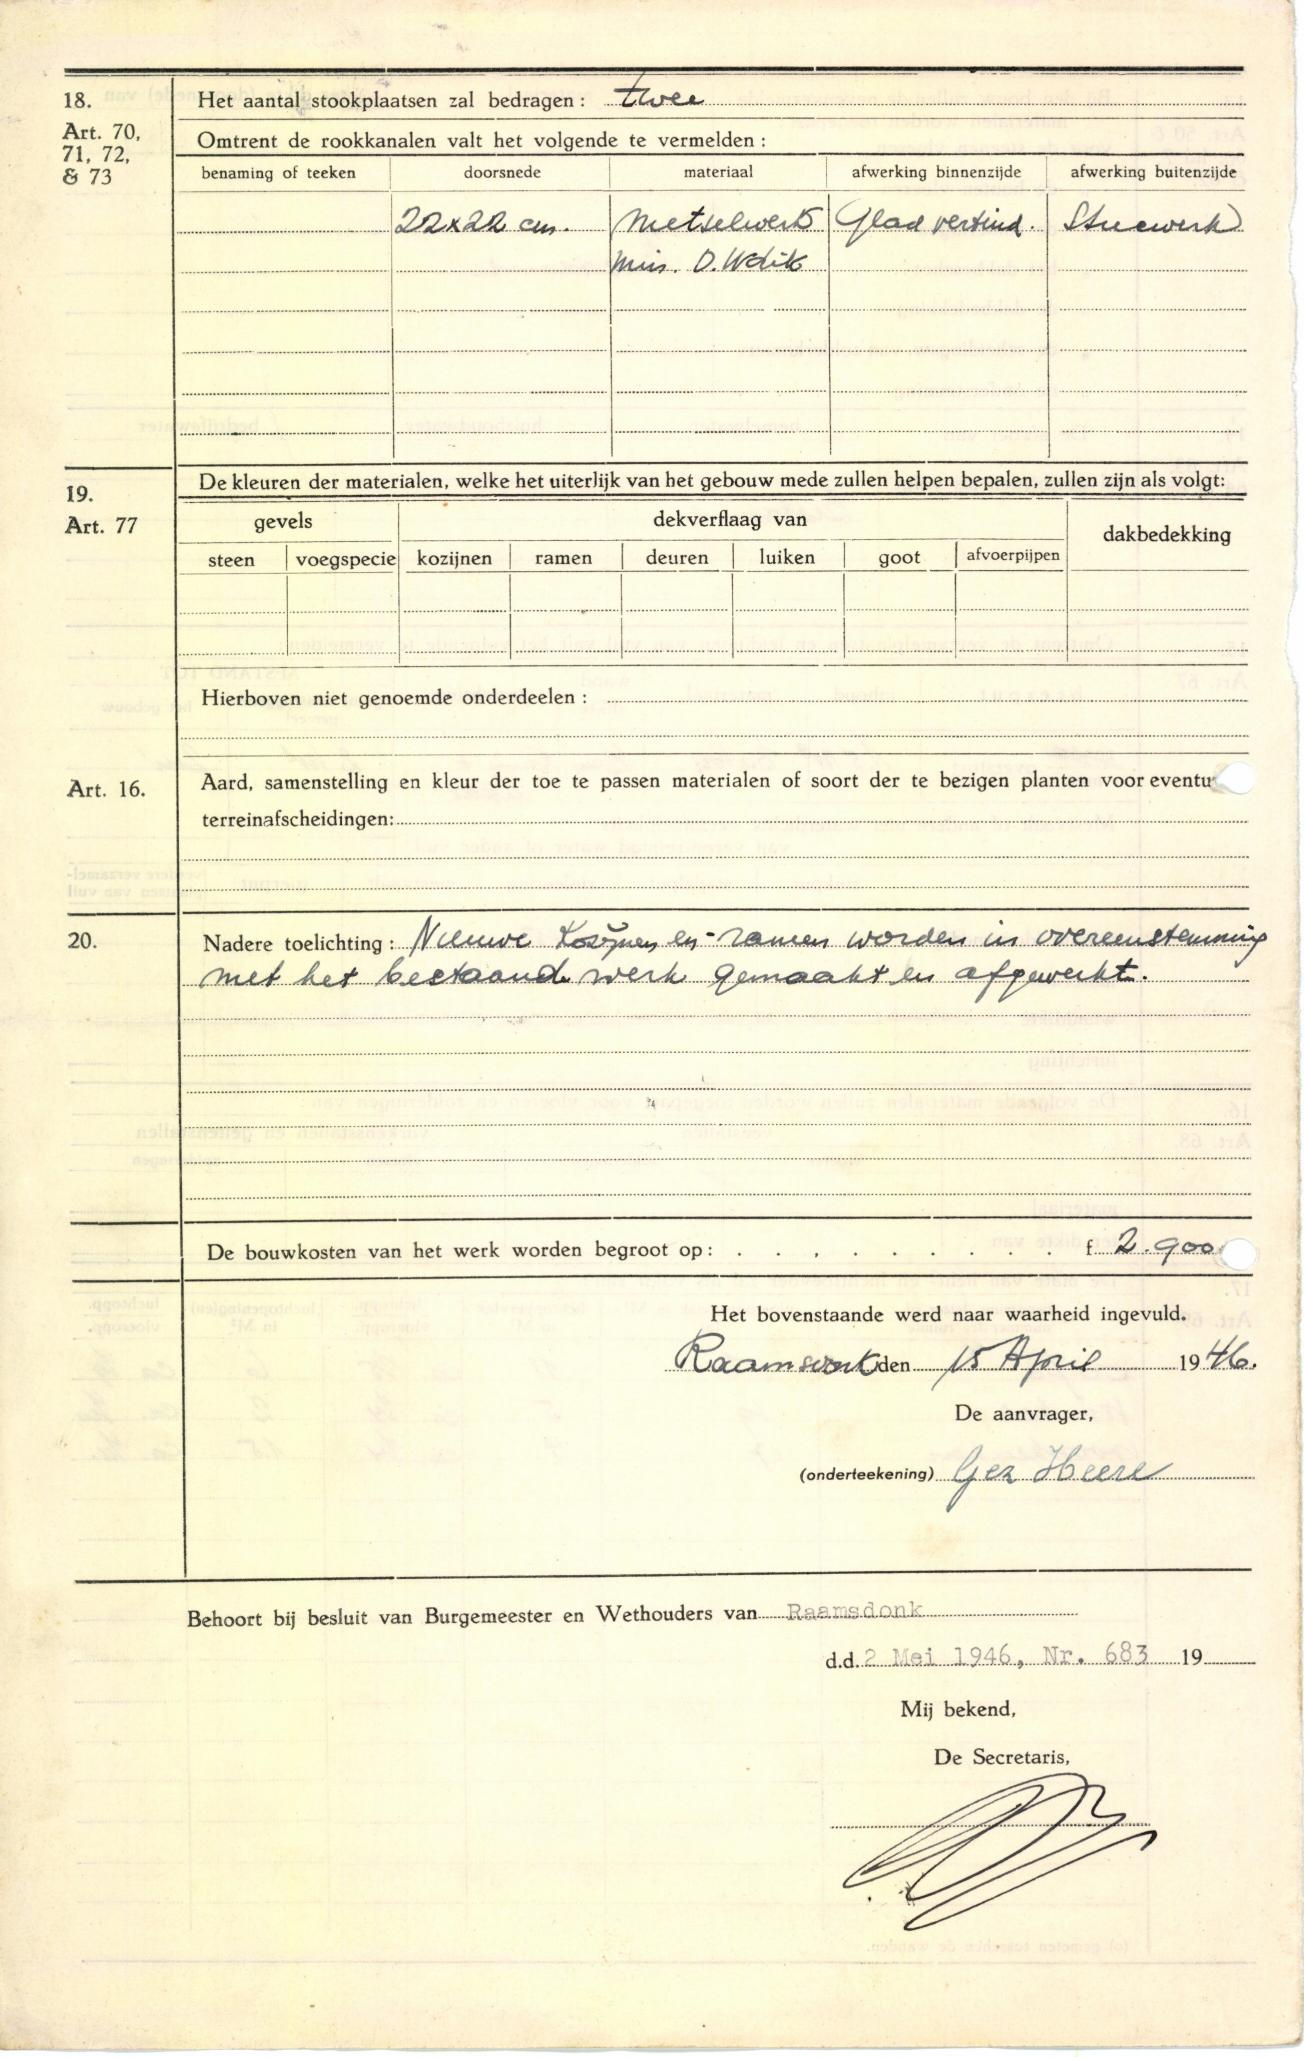 18. Het aantal stookplaatsen zal bedragen : twee
Art. 70, 71, 72, & 73
Omtrent de rookkanalen valt het volgende te vermelden :
benaming of teeken doorsnede materiaal afwerking binnenzijde afwerking buitenzijde
22x22 cm. Metselwerk Glad vertind.
min. D.
19. De kleuren der materialen, welke het uiterlijk van het gebouw mede zullen helpen bepalen, zullen zijn als volgt:
Art. 77
gevels dekverflaag van dakbedekking
steen voegspecie kozijnen ramen deuren luiken goot afvoerpijpen
Hierboven niet genoemde onderdeelen :
Art. 16. Aard, samenstelling en kleur der toe te passen materialen of soort der te bezigen planten voor eventu
terreinafscheidingen:
20. Nadere toelichting : Nieuwe Kozijnen en ramen worden in overeenstemming
met het bestaand werk gemaakt en afgewerkt.
De bouwkosten van het werk worden begroot op : . . . . . . . . . . f 2.900
Het bovenstaande werd naar waarheid ingevuld.
Raamsdonk den 15 April 1946.
De aanvrager,
(onderteekening) Gez Heere
Behoort bij besluit van Burgemeester en Wethouders van Raamsdonk
d.d. 2 Mei 1946, Nr. 683 19
Mij bekend,
De Secretaris,